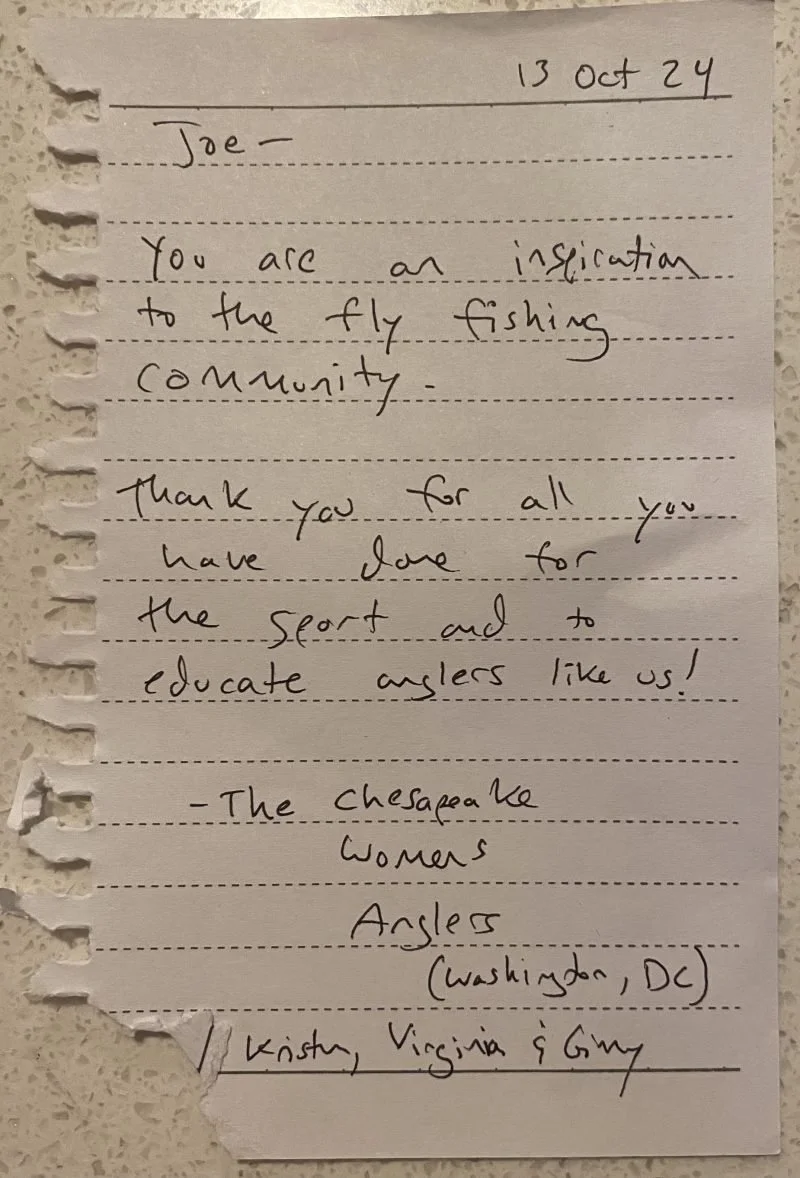 13 Oct 24
Joe —
You are an inspiration
to the fly fishing
community.
Thank you for all you
have done for
the sport and to
educate anglers like us!
- The Chesapeake
Womens
Anglers
(Washington, DC)
// Kristen, Virginia & Ginny